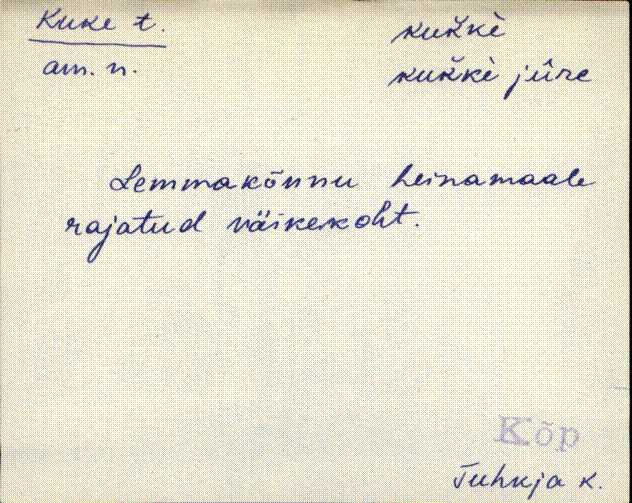 Kuke t.
am. n.
kuǩkè
kuǩkè jûre
Lemmakõnnu heinamaale
rajatud väikekoht.
Kõp
Tuhkja k.